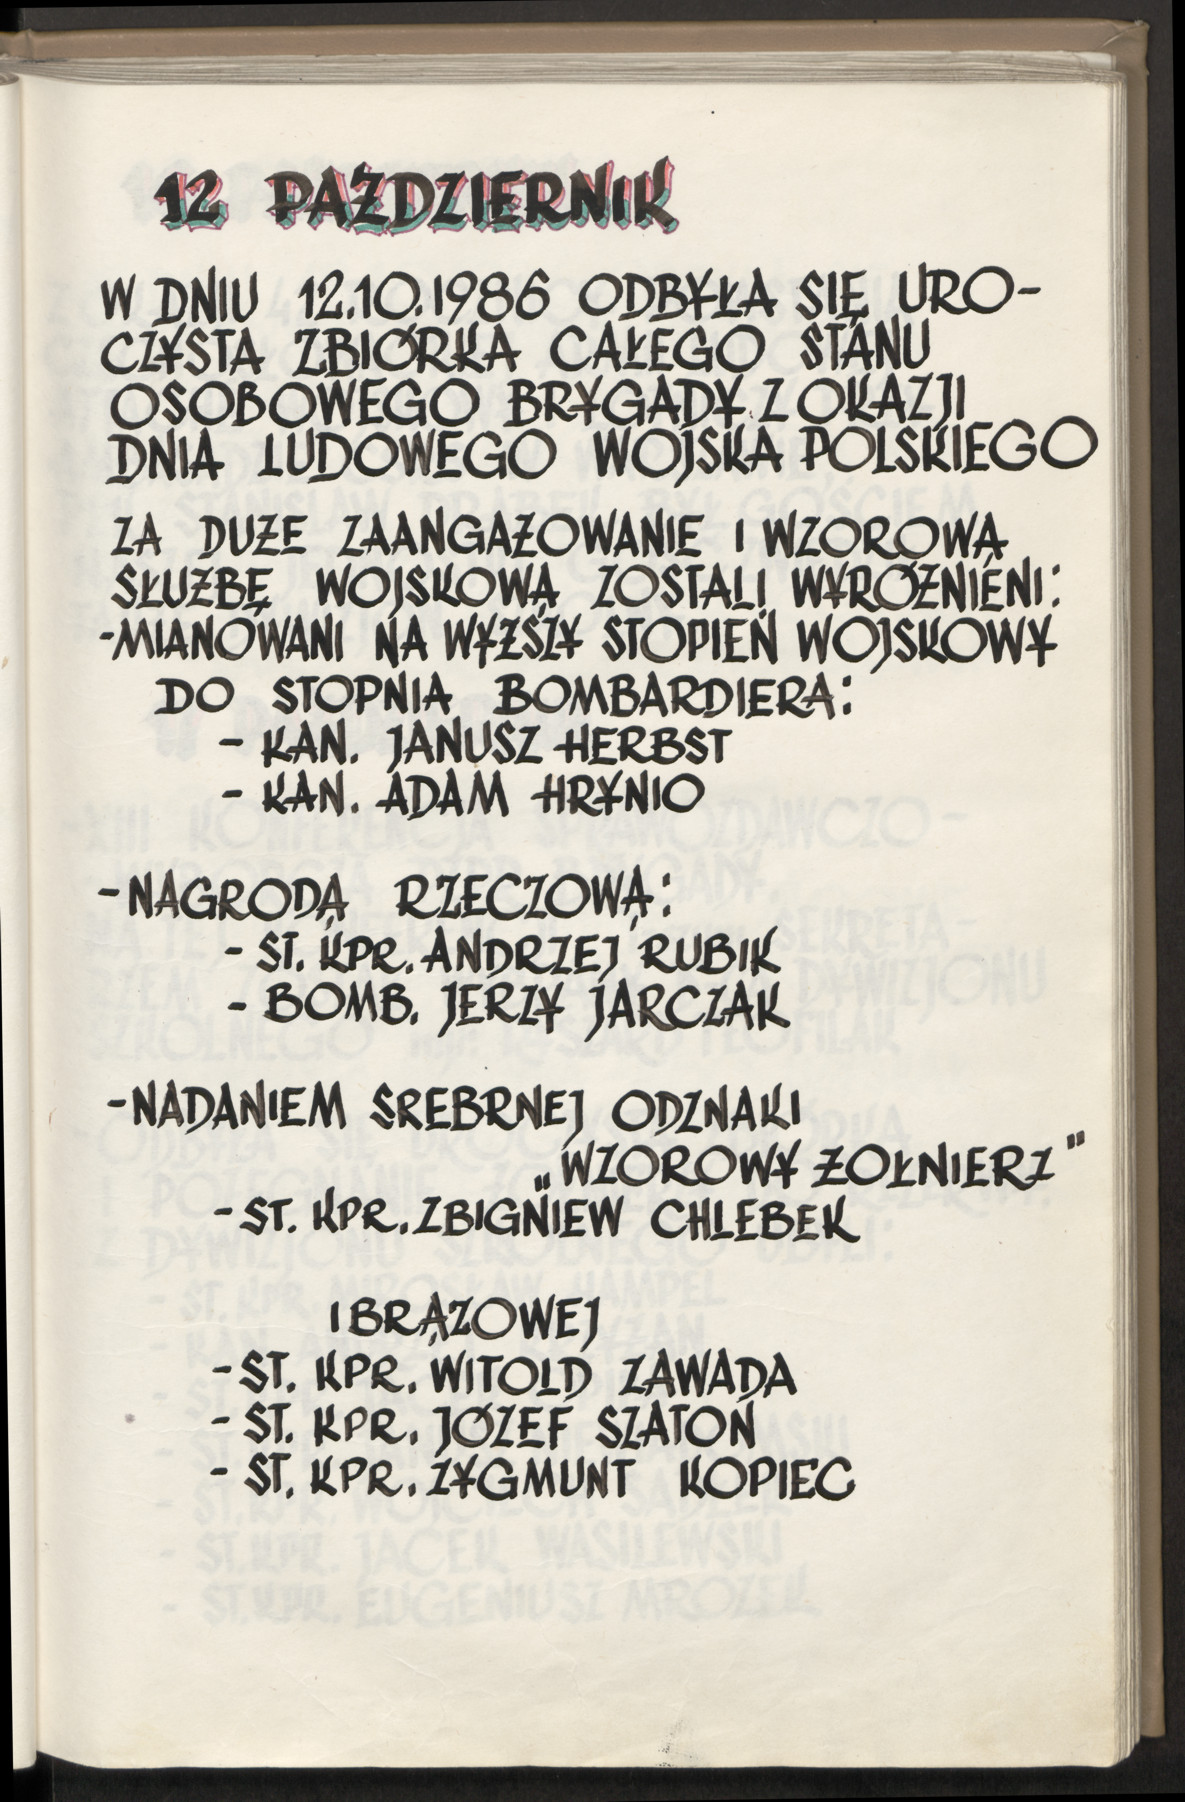 12 PAŹDZIERNIK
W DNIU 12.10.1986 ODBYŁA SIĘ URO-
CZYSTA ZBIÓRKA CAŁEGO STANU
OSOBOWEGO BRYGADY Z OKAZJI
DNIA LUDOWEGO WOJSKA POLSKIEGO
ZA DUŻE ZAANGAŻOWANIE I WZOROWĄ
SŁUŻBĘ WOJSKOWĄ ZOSTALI WYRÓŻNIENI:
-MIANOWANI NA WYŻSZY STOPIEŃ WOJSKOWY
DO STOPNIA BOMBARDIERA:
- KAN. JANUSZ HERBST
- KAN. ADAM HRYNIO
-NAGRODĄ RZECZOWĄ:
- ST. KPR. ANDRZEJ RUBIK
- BOMB. JERZY JARCZAK
-NADANIEM SREBRNEJ ODZNAKI
„WZOROWY ŻOŁNIERZ"
- ST. KPR. ZBIGNIEW CHLEBEK
I BRĄZOWEJ
- ST. KPR. WITOLD ZAWADA
- ST. KPR. JÓZEF SZATOŃ
- ST. KPR. ZYGMUNT KOPIEC